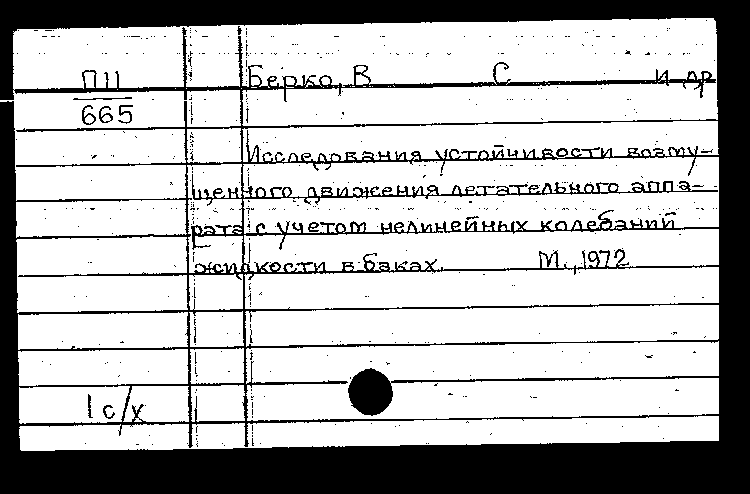 П11 Берко, В С и др
665
Исследования устойчивости возму-
щенного движения летательного аппа-
рата с учетом нелинейных колебаний
жидкости в баках. М., 1972
1 с/х